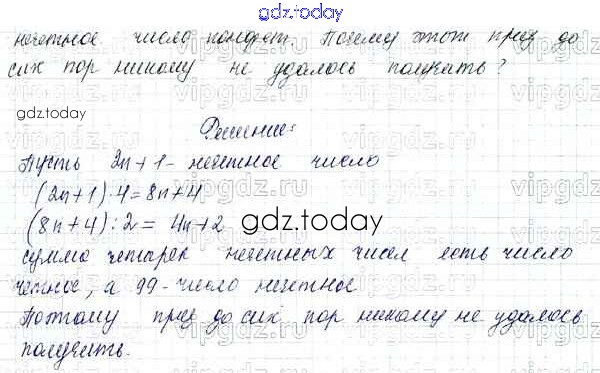 gdz.today
нечетное число конфет. Почему этот приз до
сих пор никому не удалось получить?
gdz.today
Решение:
Пусть 2n+1 - нечетное число
(2n+1)·4=8n+4
(8n+4):2=4n+2
gdz.today
сумма четырех нечетных чисел есть число
четное, а 99-число нечетное
Поэтому приз до сих пор никому не удалось
получить.